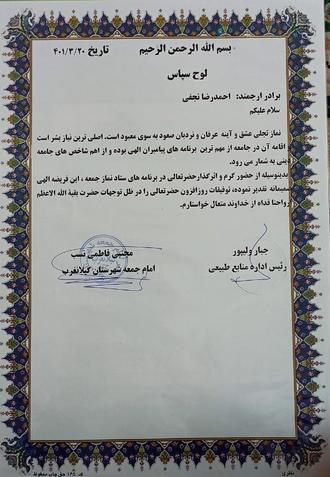 بسم الله الرحمن الرحیم
تاریخ ۴۰۱/۳/۲۰
لوح سپاس
برادر ارجمند: احمدرضا نجفی
سلام علیکم
نماز تجلی عشق و آینه عرفان و نردبان صعود به سوی معبود است. اصلی ترین نیاز بشر است
اقامه آن در جامعه از مهم ترین برنامه های پیامبران الهی بوده و از اهم شاخص های جامعه
دینی به شمار می رود.
بدینوسیله از حضور گرم و اثرگذارحضرتعالی در برنامه های ستاد نماز جمعه ، این فریضه الهی
صمیمانه تقدیر نموده، توفیقات روزافزون حضرتعالی را در ظل توجهات حضرت بقیة الله الاعظم
ارواحنا فداه از خداوند متعال خواستارم.
جبار ولیپور
رئیس ادارهٔ منابع طبیعی
مجتبی فاطمی نسب
امام جمعه شهرستان گیلانغرب
نظری
حق چاپ محفوظ